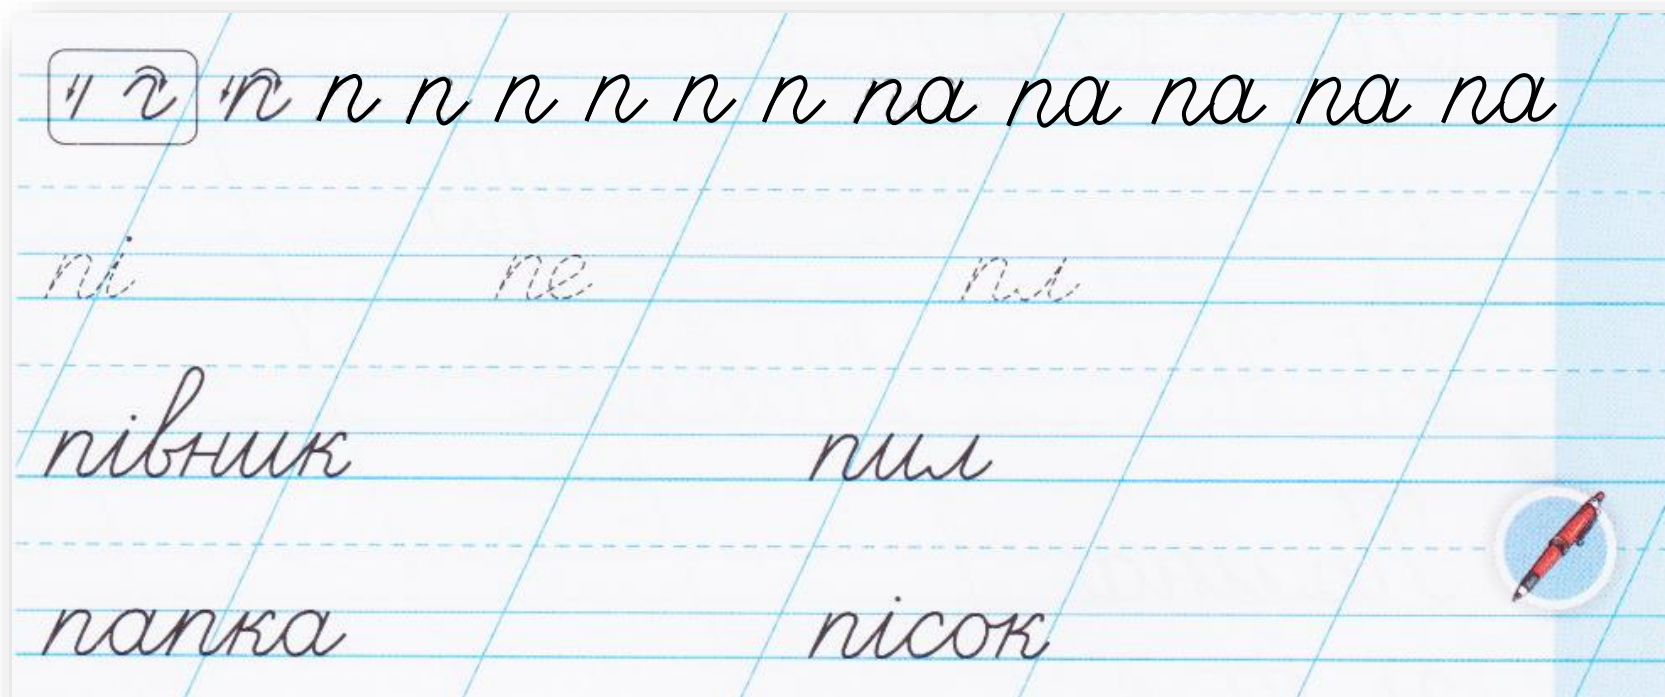 п п п п п п п па па па па па
пі пе пл
півник пил
папка пісок